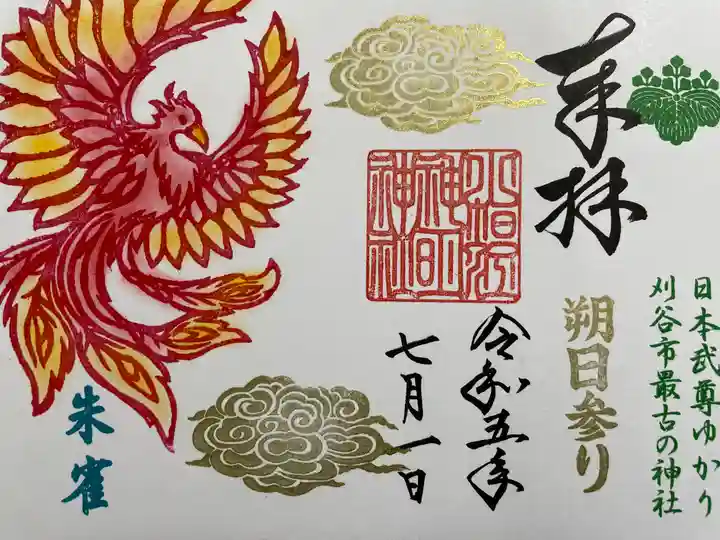 日本武尊ゆかり
刈谷市最古の神社
奉拝
朔日参り
小垣江
神明
神社
令和五年
七月一日
朱雀